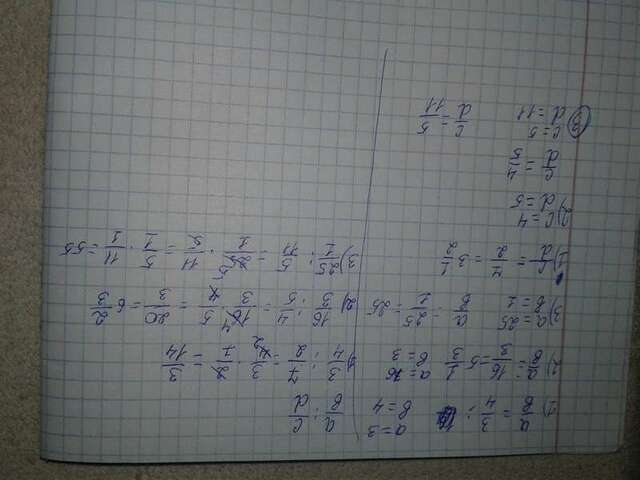 1) a/b = 3/4 ; a=3 b=4
2) a/b = 16/3 = 5 1/3 a=16 b=3
3) a=25 b=1 a/b = 25/1 = 25
1) c/d = 7/2 = 3 1/2
2) c=4 d=5
c/d = 4/5
3) c=5 d=11 c/d = 5/11
a/b : c/d
1) 3/4 : 7/2 = 3/4 · 2/7 = 3/14
2) 16/3 : 4/5 = 16/3 · 5/4 = 20/3 = 6 2/3
3) 25/1 : 5/11 = 25/1 · 11/5 = 5/1 · 11/1 = 55